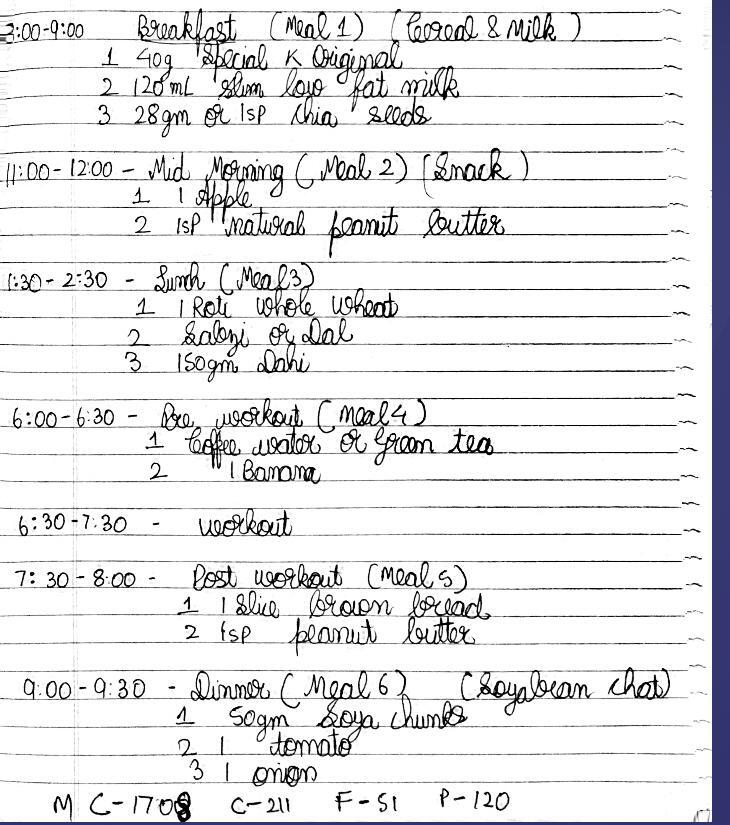 8:00-9:00 Breakfast (Meal 1) (Cereal & Milk)
1 40g Special K Original
2 120 mL slim low fat milk
3 28gm or 1sp chia seeds
11:00 - 12:00 - Mid Morning (Meal 2) (Snack)
1 1 Apple
2 1sp natural peanut butter
1:30 - 2:30 - Lunch (Meal 3)
1 1 Roti whole wheat
2 Sabzi or Dal
3 150gm Dahi
6:00 - 6:30 - Pre workout (Meal 4)
1 Coffee water or Green tea
2 1 Banana
6:30 - 7:30 - workout
7:30 - 8:00 - Post workout (Meal 5)
1 1 Slice brown bread
2 1sp peanut butter
9:00 - 9:30 - Dinner (Meal 6) (Soyabean chat)
1 50gm Soya chunks
2 1 tomato
3 1 onion
M C-1708 C-211 F-51 P-120